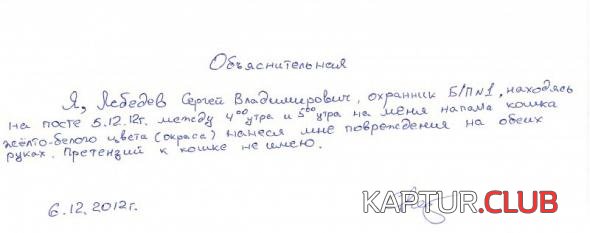 Объяснительная
Я, Лебедев Сергей Владимирович, охранник Б/П№1, находясь
на посте 5.12.12г. между 4⁰⁰ утра и 5⁰⁰ утра на меня напала кошка
жёлто-белого цвета (окраса) нанеся мне повреждения на обеих
руках. Претензий к кошке не имею.
6.12.2012г.
KAPTUR.CLUB